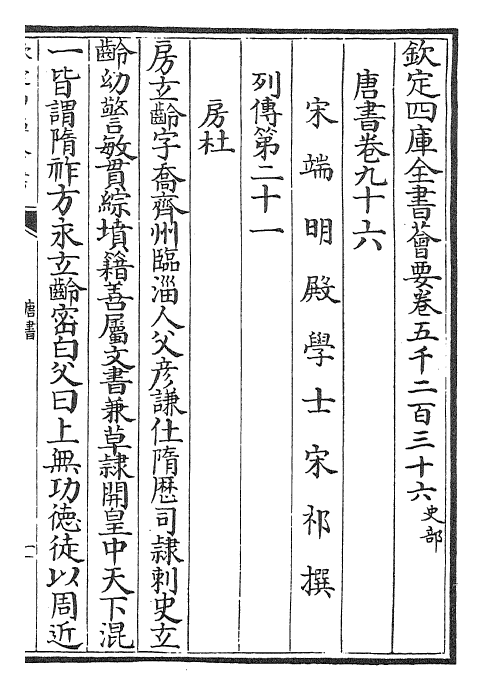 欽定四庫全書薈要卷五千二百三十六 史部
唐書卷九十六
宋端明殿學士宋祁撰
列傳第二十一
房杜
房玄齡字喬齊州臨淄人父彥謙仕隋歴司隷刺史玄
齡幼警敏貫綜墳籍善屬文書兼草隷開皇中天下混
一皆謂隋祚方永玄齡密白父曰上無功徳徒以周近
唐書